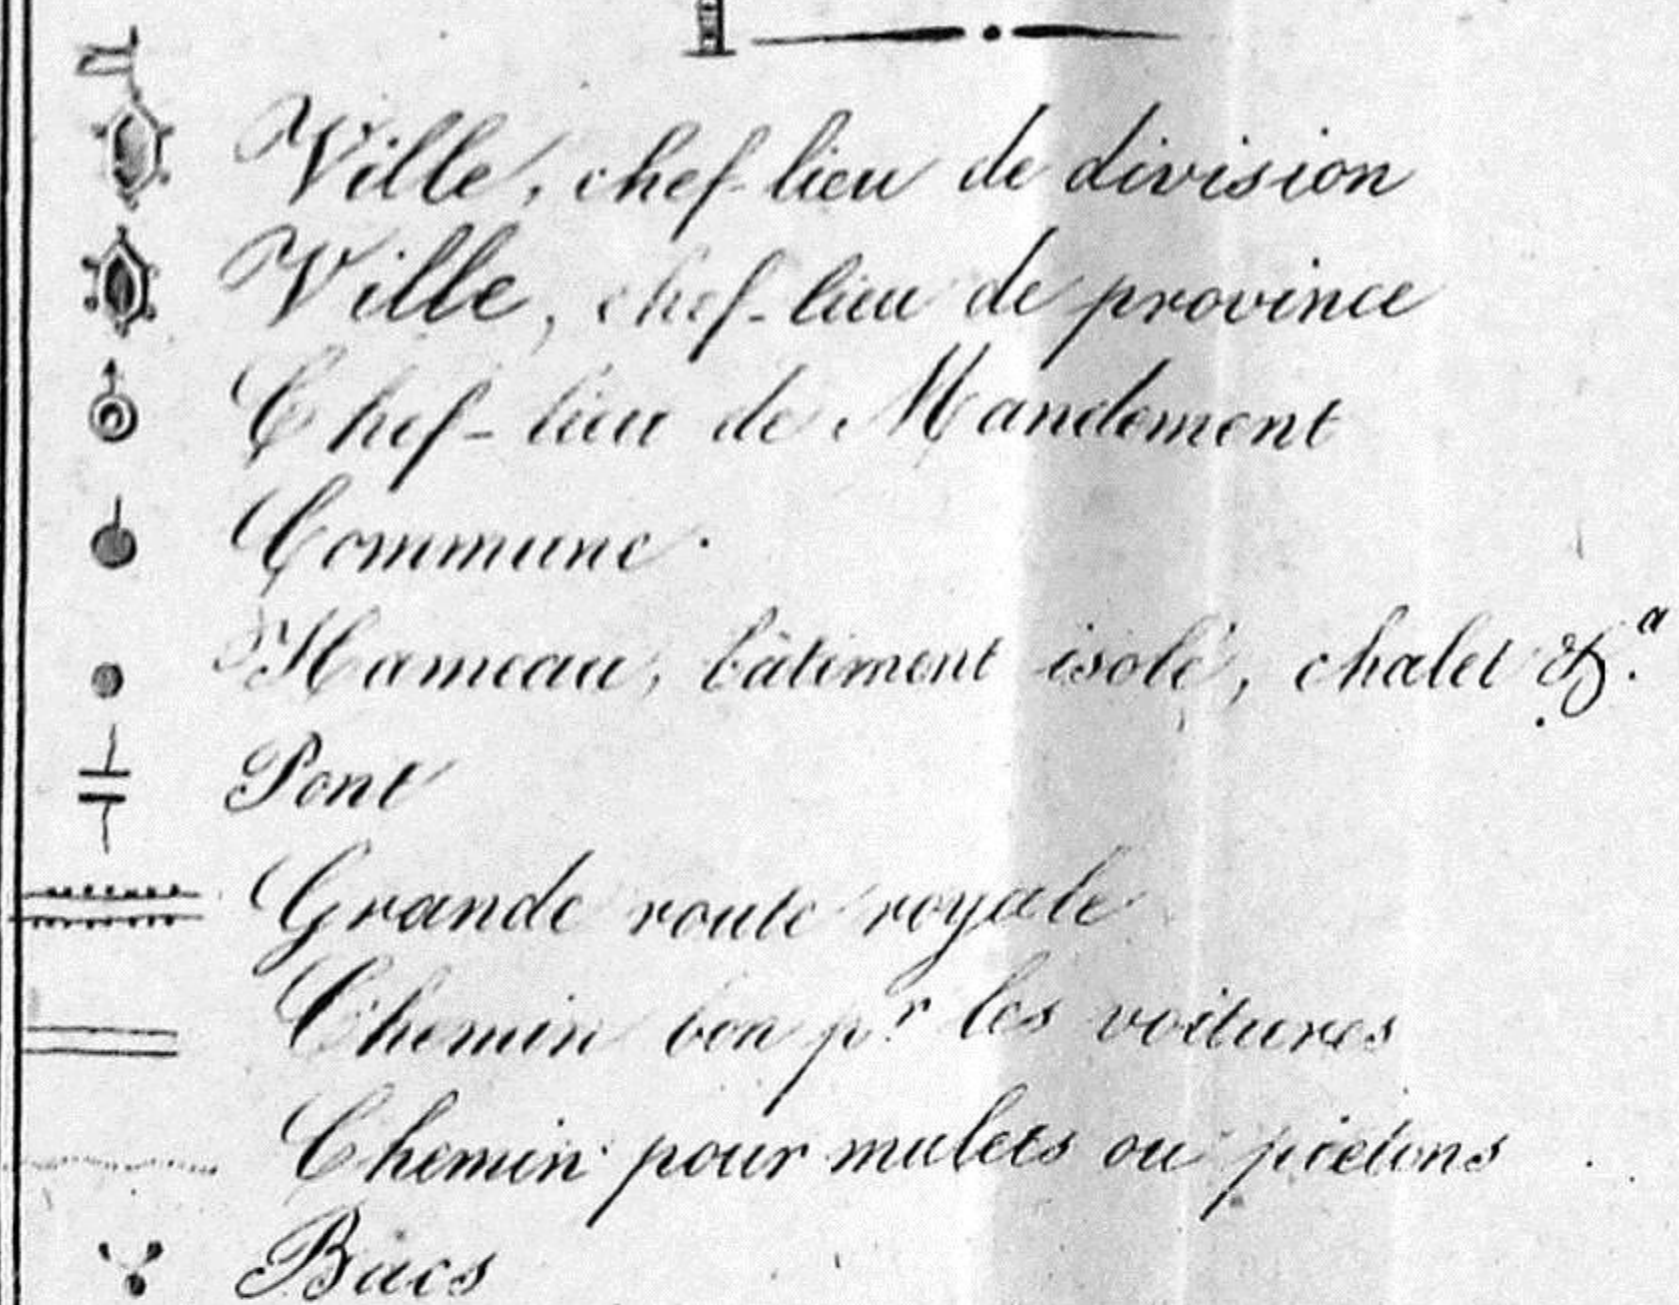 Ville, chef-lieu de division
Ville, chef-lieu de province
Chef-lieu de Mandement
Commune.
Hameau, bâtiment isolé, chalet &.a
Pont
Grande route royale
Chemin bon p.r les voitures
Chemin pour mulets ou piétons
Bacs